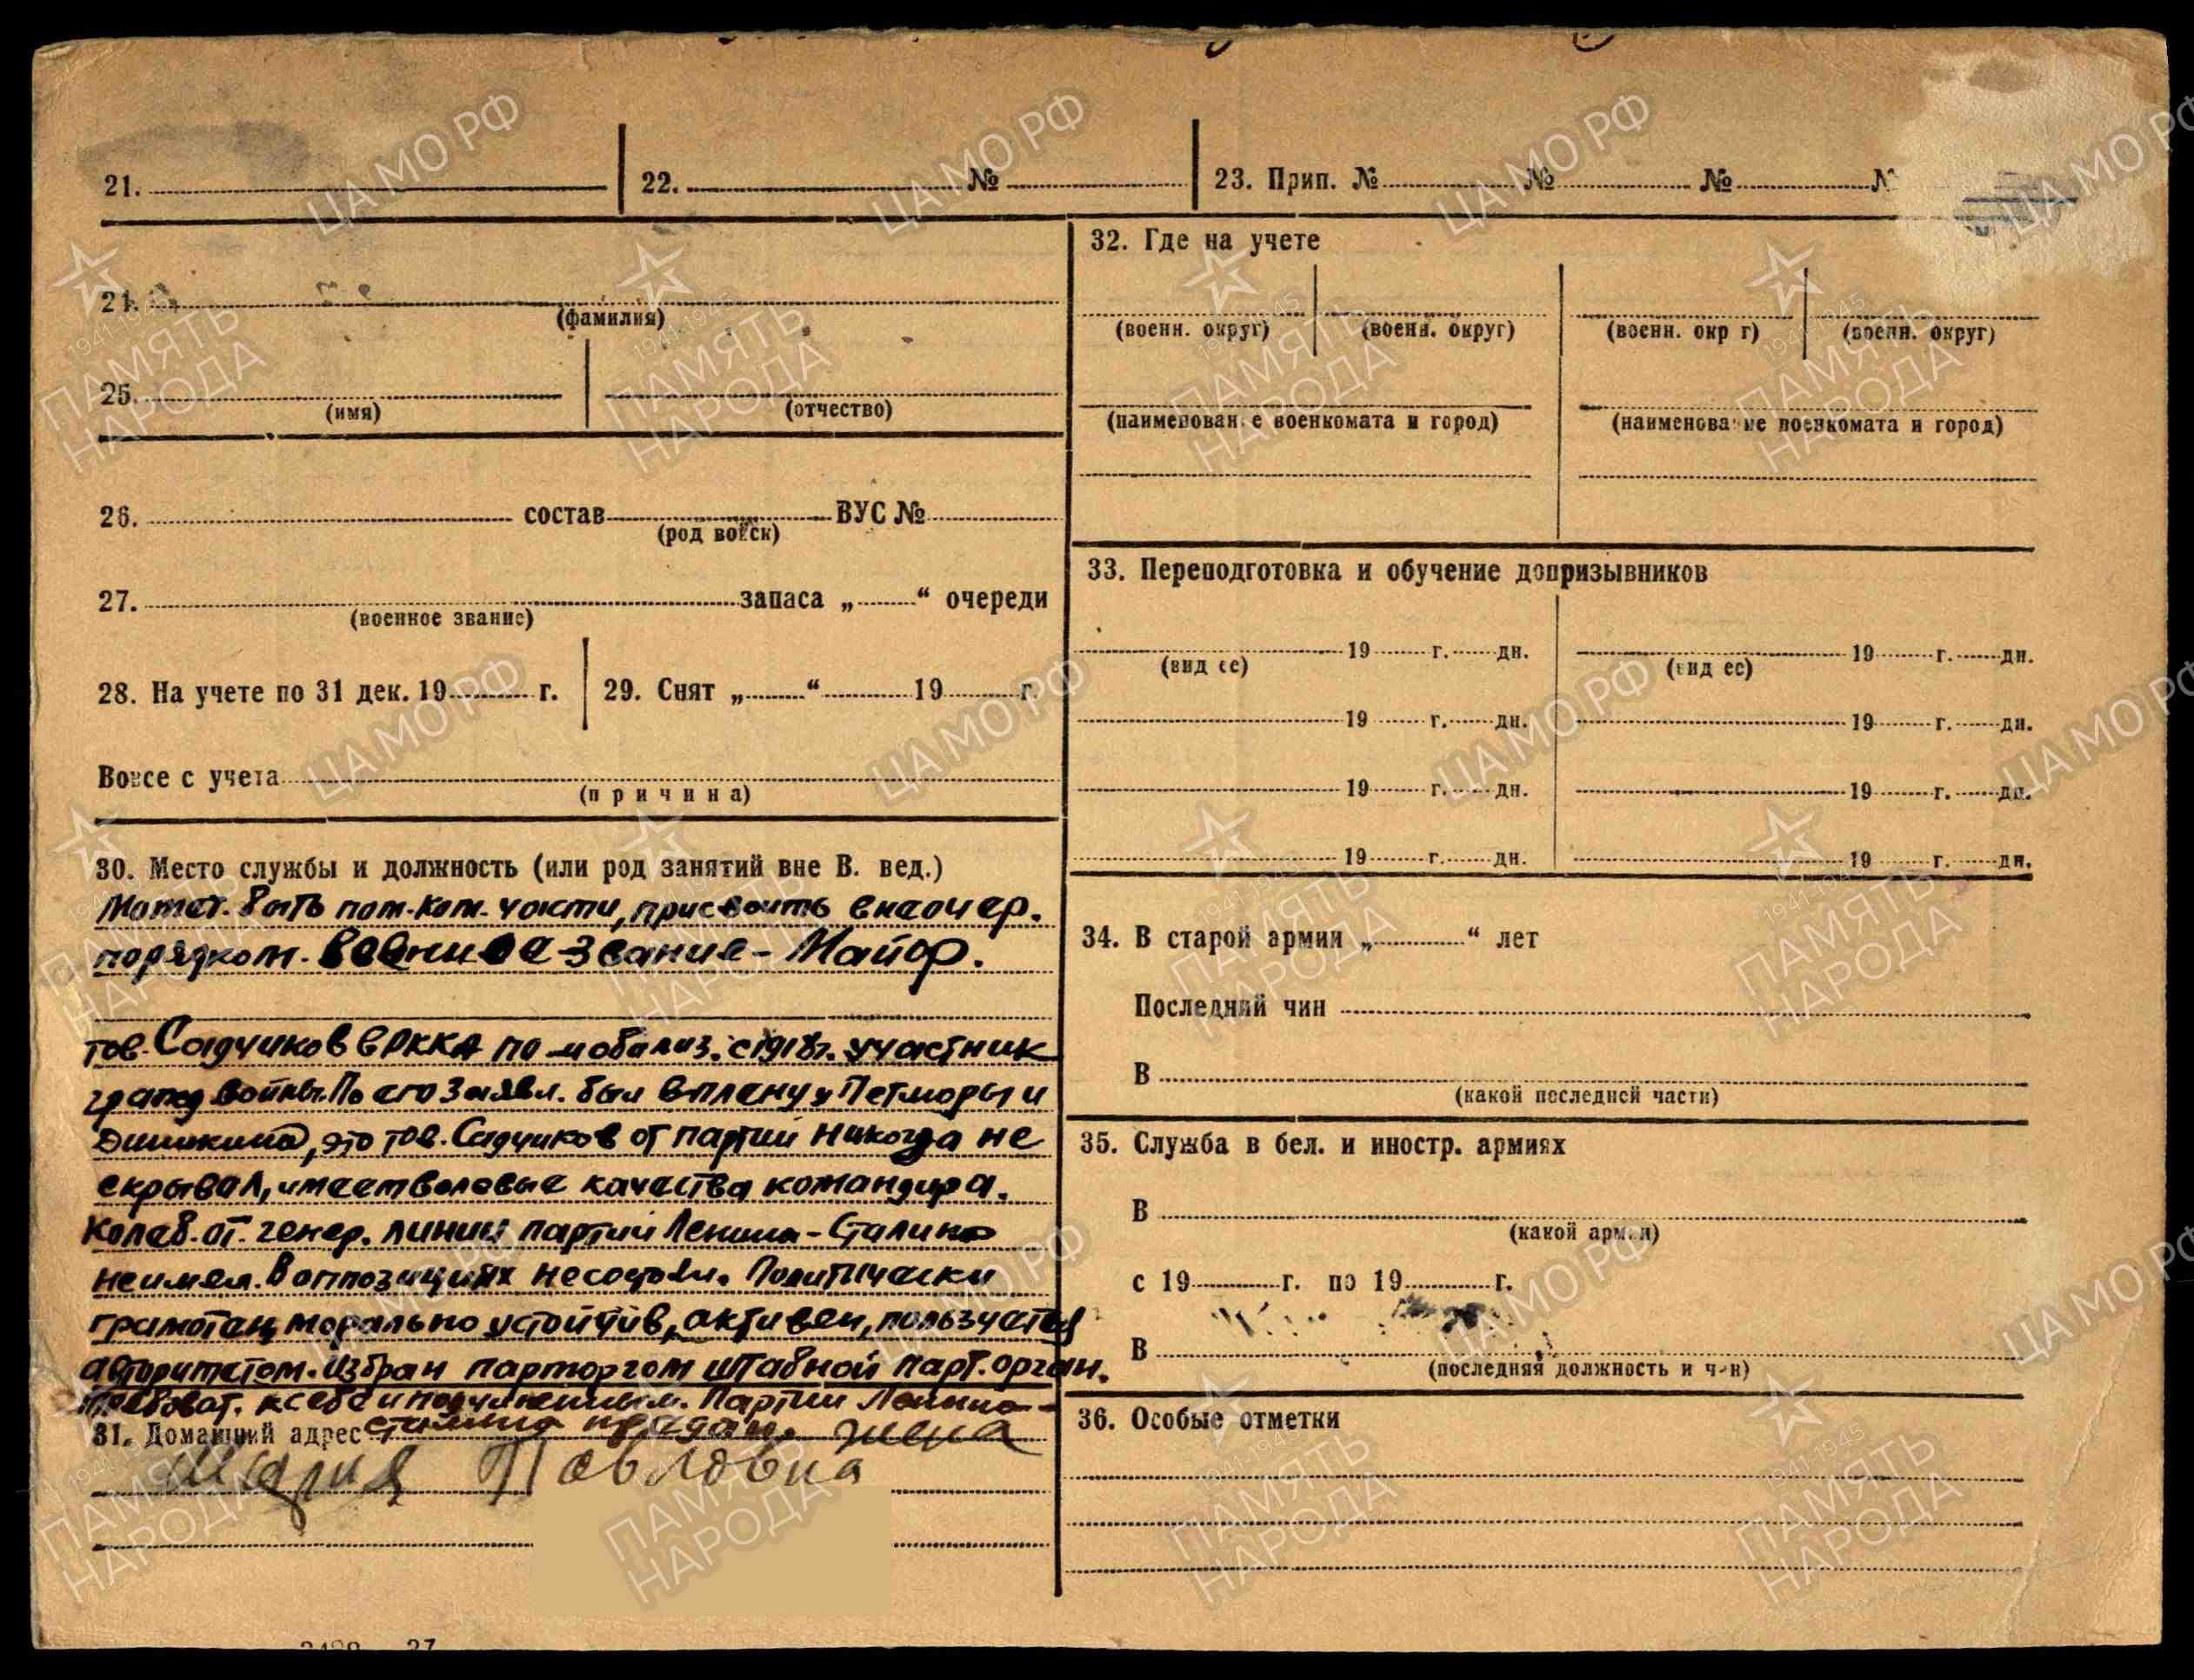 21. 22. № 23. Прип. № № №
24.
(фамилия)
25.
(имя) (отчество)
26. состав ВУС №
(род войск)
27. запаса „ “ очереди
(военное звание)
28. На учете по 31 дек. 19 г. 29. Снят „ “ 19 г.
Вовсе с учета
(причина)
30. Место службы и должность (или род занятий вне В. вед.)
Может. быть пом. ком. части, присвоить внеочер.
порядком. военное звание - Майор.
тов. Садчиков в РККА по мобилиз. с 1918г. участник
гражд войны. По его заявл. был в плену у Петлюры и
это тов. Садчиков от партии никогда не
скрывал, имеет волевые качества командира.
Колеб. от. генер. линии партии Ленина - Сталина
не имел. В оппозициях не состоял. Политически
грамотен, морально устойчив, активен, пользуется
авторитетом. Избран парторгом штабной парт. орган.
Требоват. к себе и подчиненным. Партии Ленина -
31. Домашний адрес Сталина предан. жена
Мария Павловна
32. Где на учете
(военн. округ) (военн. округ) (военн. окр г) (военн. округ)
(наименование военкомата и город) (наименование военкомата и город)
33. Переподготовка и обучение допризывников
19 г. дн. 19 г. дн.
(вид ее) (вид ее)
19 г. дн. 19 г. дн.
19 г. дн. 19 г. дн.
19 г. дн. 19 г. дн.
34. В старой армии „ “ лет
Последний чин
В
(какой последней части)
35. Служба в бел. и иностр. армиях
В
(какой армии)
с 19 г. по 19 г.
В
(последняя должность и чин)
36. Особые отметки
ЦАМО РФ
1941-1945
ПАМЯТЬ
НАРОДА